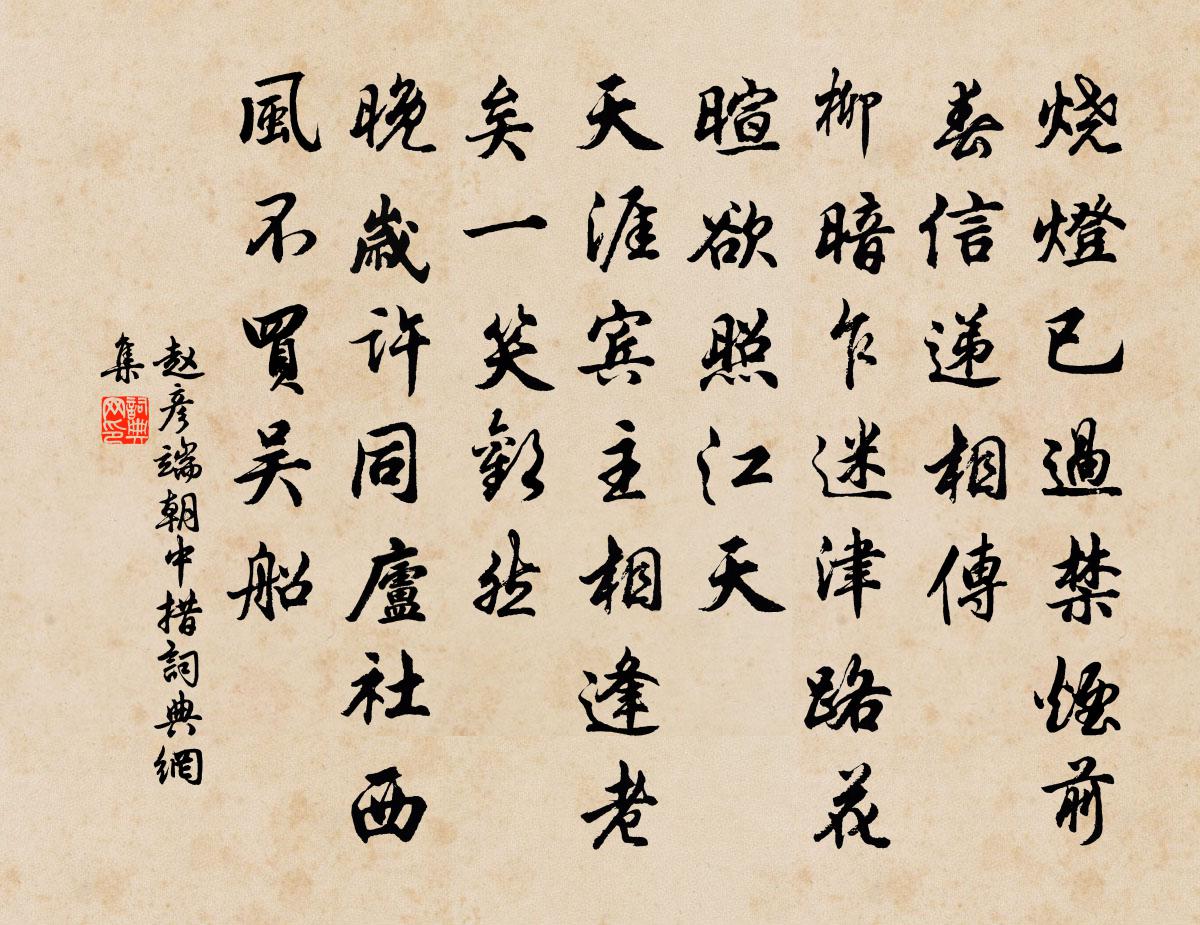 烧燈已過禁煙前
春信遞相傳
柳暗乍迷津路花
暄欲照江天
天涯宾主相逢老
矣一笑歡然
晚歲许同廬社西
風不買吴船
赵彦端朝中措詞典網
集
詞典
网印